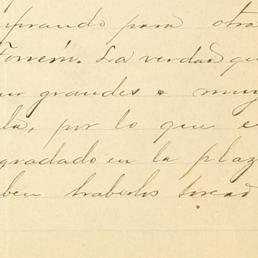 prando para otra
Torreón. La verdad qu
ur grandes o muy
la, por lo que e
gradado en la plaz
ben haberlos